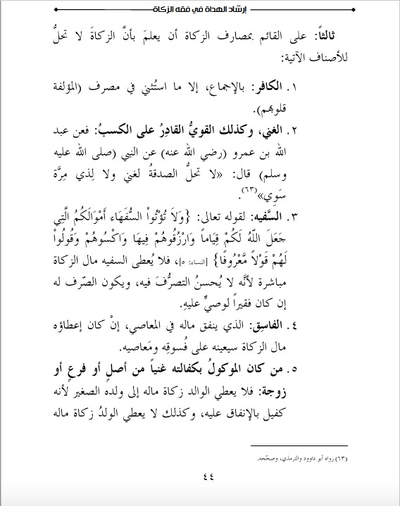 إرشاد الهداة في فقه الزكاة
ثالثاً: على القائم بمصارف الزكاة أن يعلمَ بأنَّ الزكاةَ لا تحلُّ
للأصناف الآتية:
١. الكافر: بالإجماع، إلا ما استُثني في مصرف (المؤلفة
قلوبهم).
٢. الغني، وكذلك القويُّ القادِرُ على الكسبُ: فعن عبد
الله بن عمرو (رضي الله عنه) عن النبي (صلى الله عليه
وسلم) قال: «لا تحلُّ الصدقةُ لغني ولا لِذي مِرَّة
سَوِي»(٦٣).
٣. السَّفيه: لقوله تعالى: {وَلَا تُؤْتُواْ السُّفَهَاء أَمْوَالَكُمُ الَّتِي
جَعَلَ اللّهُ لَكُمْ قِيَاماً وَارْزُقُوهُمْ فِيهَا وَاكْسُوهُمْ وَقُولُواْ
لَهُمْ قَوْلاً مَّعْرُوفًا} [النساء: ٥]، فلا يُعطى السفيه مال الزكاة
مباشرة لأنَّه لا يُحسنُ التصرُّفَ فيه، ويكون الصّرف له
إن كان فقيراً لوصيٍّ عليهِ.
٤. الفاسِق: الذي ينفق ماله في المعاصي، إنْ كان إعطاؤه
مال الزكاة سيعينه على فُسوقِه ومَعاصيه.
٥. من كان الموكولُ بكفالته غنياً من أصلٍ أو فرعٍ أو
زوجة: فلا يعطي الوالد زكاة ماله إلى ولده الصغير لأنه
كفيل بالإنفاق عليه، وكذلك لا يعطي الولدُ زكاة ماله
(٦٣) رواه أبو داوود والترمذي، وصحّحه.
٤٤